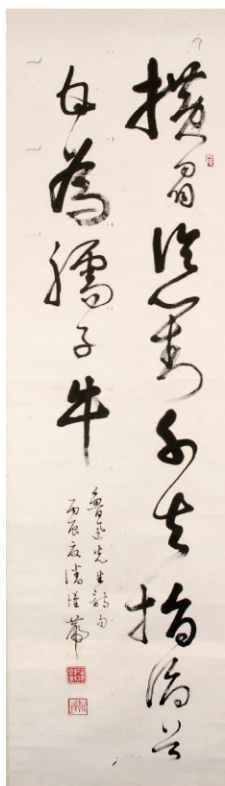 橫眉冷對千夫指俯首
甘為孺子牛
魯迅先生詩句
丙辰夏潘